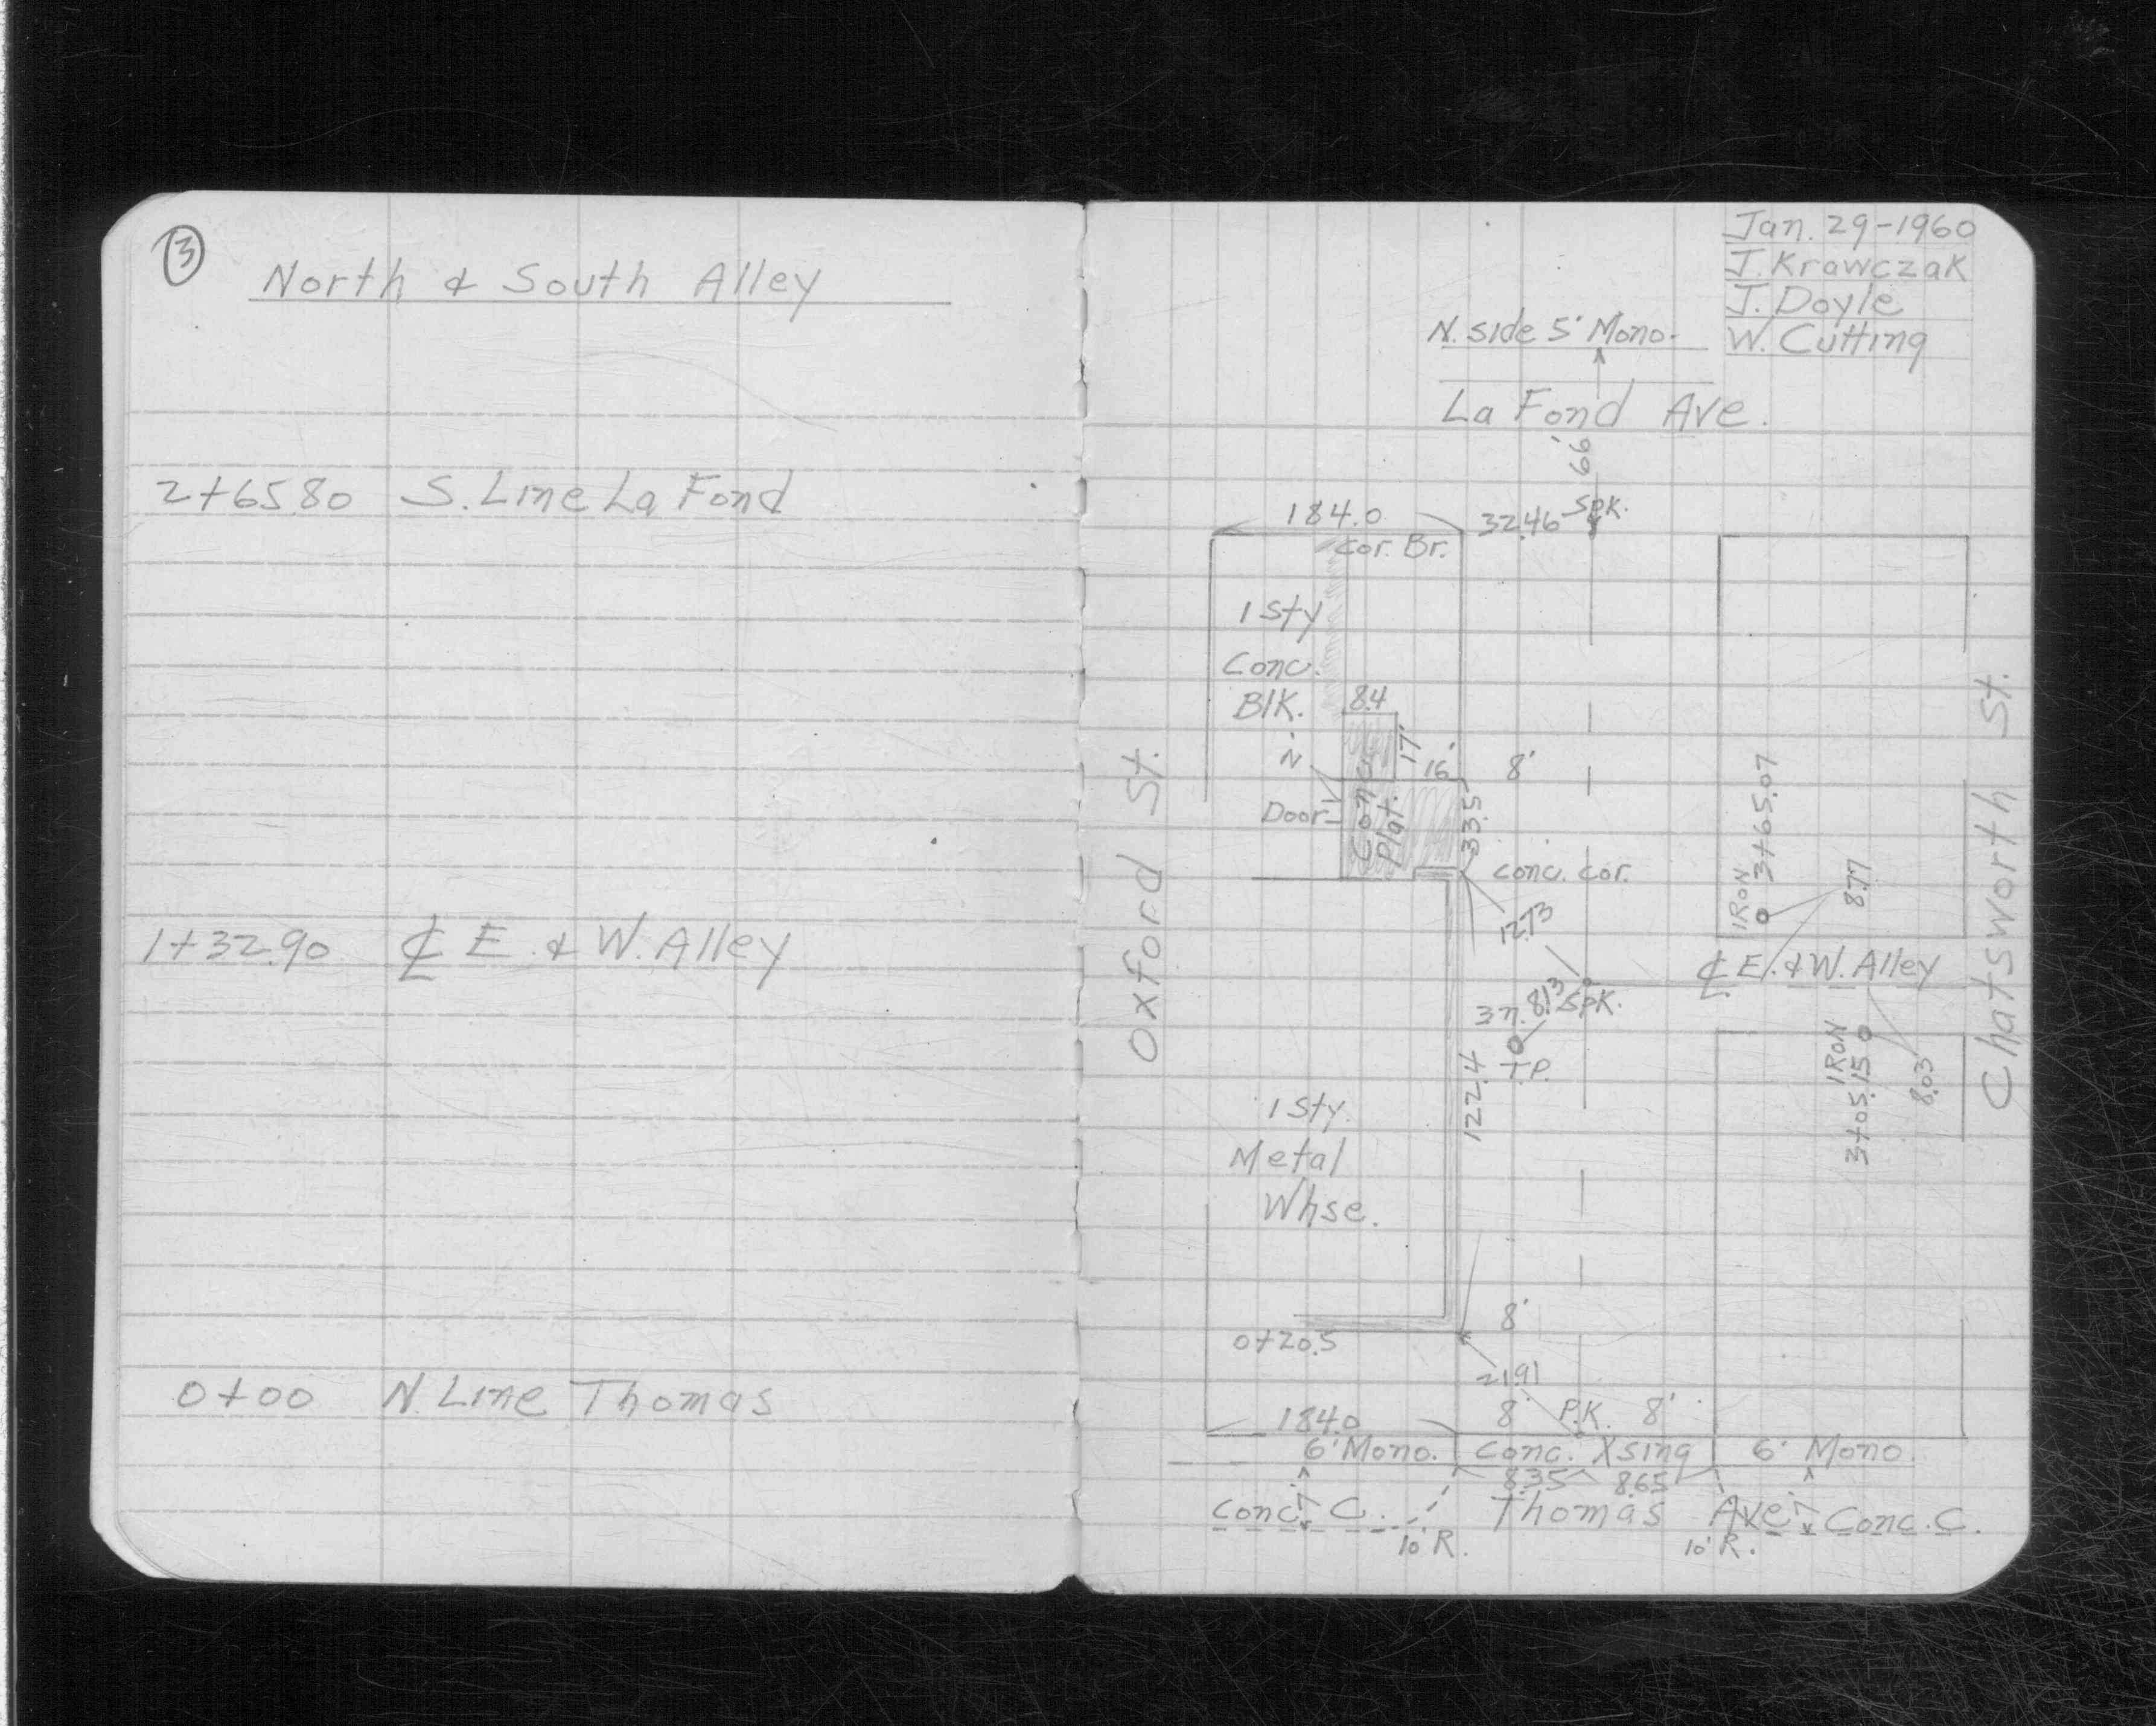 3
North & South Alley
2+65.80 S. Line La Fond
1+32.90 ℄ E. & W. Alley
0+00 N. Line Thomas
Jan. 29-1960
J. Krawczak
J. Doyle
W. Cutting
N. side 5' Mono.
La Fond Ave.
66'
184.0
32.46 Spk.
Cor. Br.
1 Sty
Conc.
Blk.
8.4
17'
16'
8'
2'
Door
Conc.
Plat.
33.5
Conc. Cor.
12.73
Oxford St.
Chatsworth St.
IRON
3+65.07
8.77
℄ E. & W. Alley
8.13 Spk.
37.
T.P.
122.4
IRON
3+05.15
8.03
1 Sty.
Metal
Whse.
8'
0+20.5
21.91
184.0
8' P.K. 8'
6' Mono. Conc. Xsing 6' Mono.
8.35 8.65
7'
Conc. C. Thomas Ave. 7' Conc. C.
10' R. 10' R.